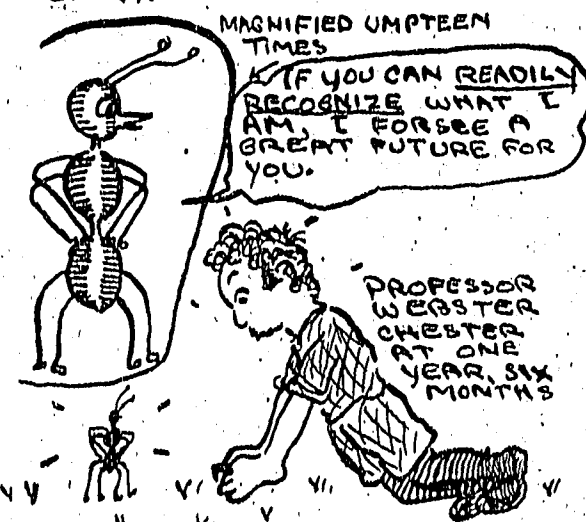 MAGNIFIED UMPTEEN
TIMES
IF YOU CAN READILY
RECOGNIZE WHAT I
AM, I FORSEE A
GREAT FUTURE FOR
YOU.
PROFESSOR
WEBSTER
CHESTER
AT ONE
YEAR, SIX
MONTHS